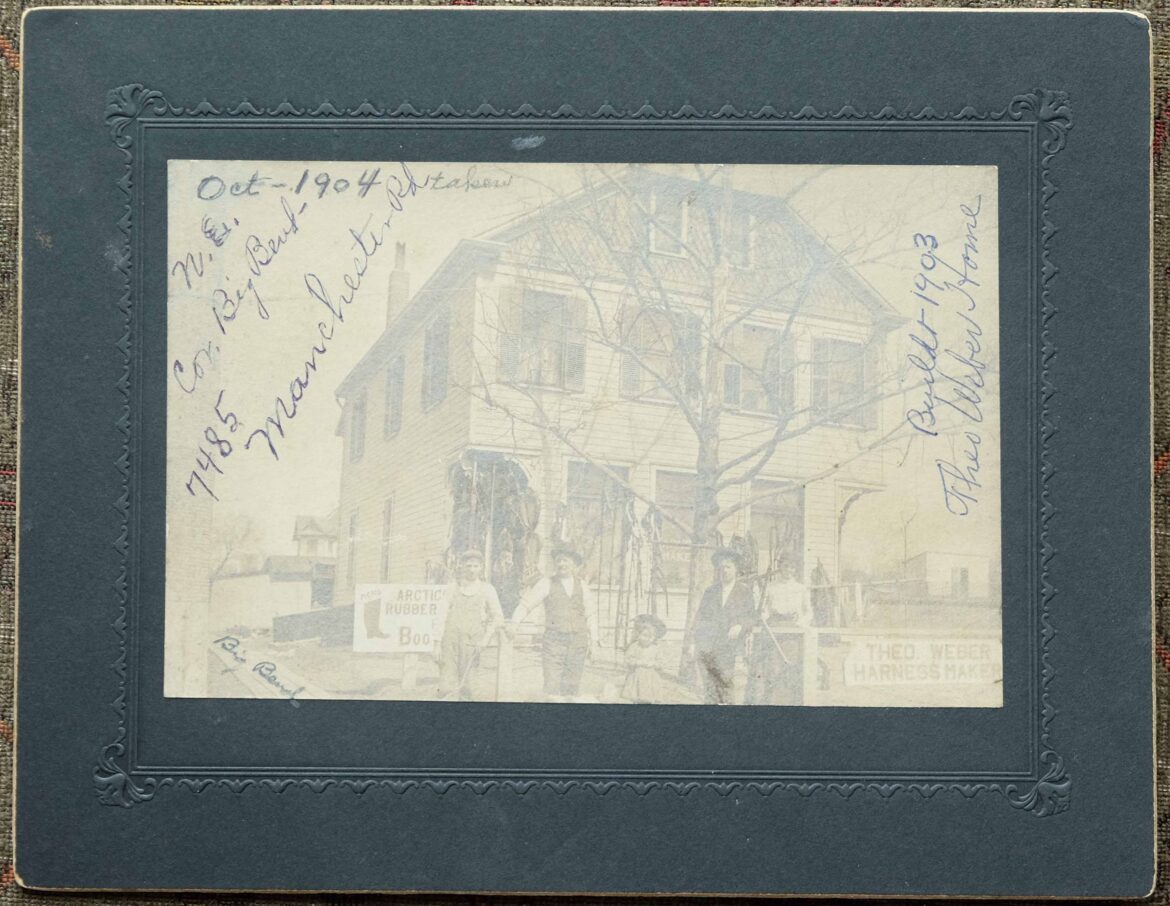 Oct - 1904 taken
N.E.
Cor. Big Bend -
7485 Manchester Rd
Buildt 1903
Theo Weber Home
MENS
ARCTIC
RUBBER
BOO
THEO. WEBER
HARNESS MAKE
Big Bend